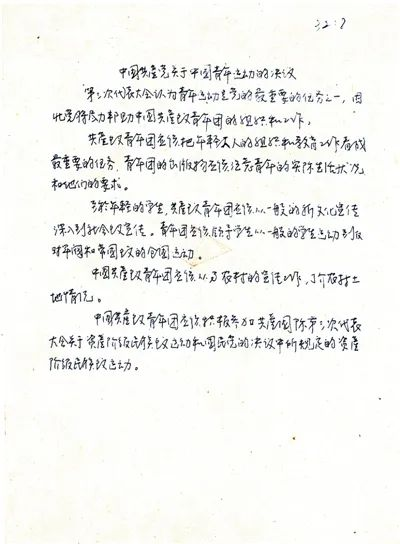 32.7
中国共产党关于中国青年运动的决议
第三次代表大会认为青年运动是党的最重要的任务之一，因
此党得尽力帮助中国共产主义青年团的组织和工作。
共产主义青年团应该把年轻工人的组织和教育工作看成
最重要的任务，青年团的出版物应该注意青年的实际生活状况
和他们的要求。
至于年轻的学生，共产主义青年团应该从一般的新文化宣传
深入到社会主义宣传。青年团应该领导学生从一般的学生运动到反
对军阀和帝国主义的合国运动。
中国共产主义青年团应该从事农村的宣传工作，了解农村土
地情况。
中国共产主义青年团应该积极参加共产国际第三次代表
大会关于资产阶级民族主义运动和国民党的决议中所规定的资产
阶级民族主义运动。